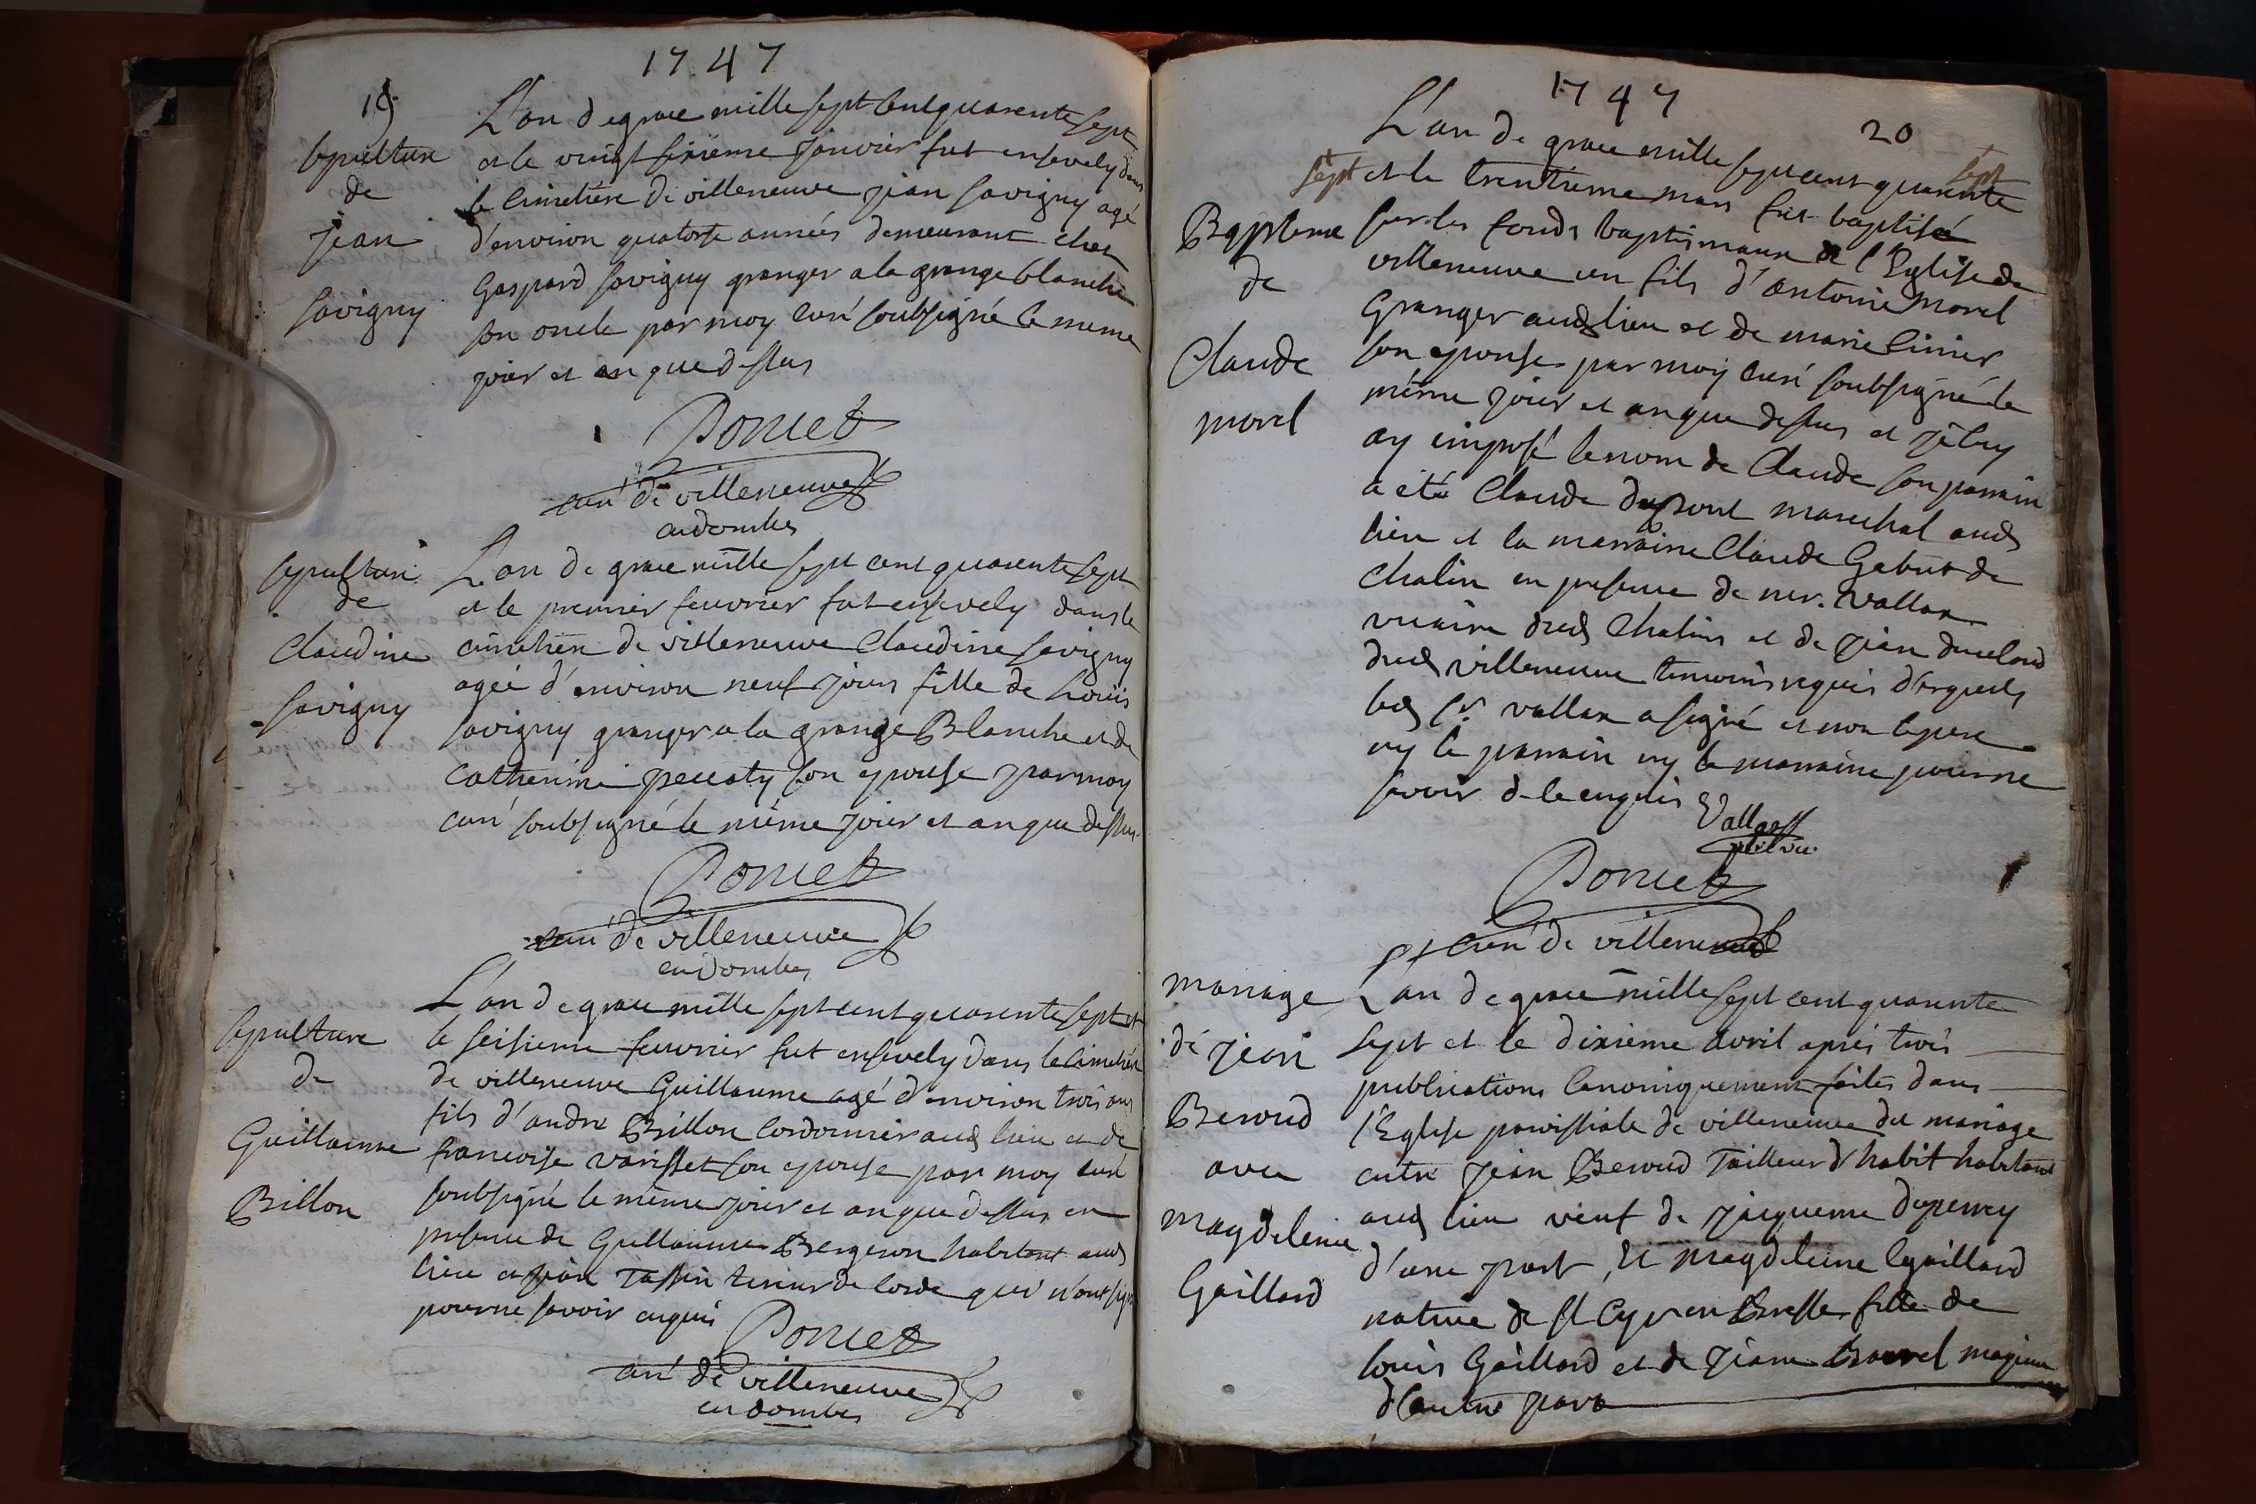 1747
19
Sepulture
de
jean
savigny
L'an de grace mille sept cent quarente sept
et le vingt sixieme janvier fut ensevely dans
le cimetiere de villeneuve jean savigny agé
d'environ quatorse années demeurant chez
Gaspard savigny granger a la grange blanche
son oncle par moy curé soubsigné le meme
jour et an que dessus
Poncet
curé de villeneuve
en dombes
sepulture
de
Claudine
savigny
L'an de grace mille sept cent quarente sept
et le premier feuvrier fut ensevely dans le
cimetiere de villeneuve Claudine savigny
agée d'environ neuf jours fille de Louis
savigny granger a la grange Blanche et de
Catherine peccoty son epouse par moy
curé soubsigné le même jour et an que dessus
Poncet
curé de villeneuve
en dombes
sepulture
de
Guillaume
Brillon
L'an de grace mille sept cent quarente sept et
le seisieme feuvrier fut ensevely dans le cimetiere
de villeneuve Guillaume agé d'environ trois ans
fils d'andre Brillon Cordonnier aud lieu et de
francoise varisset son epouse par moy curé
soubsigné le même jour et an que dessus en
presence de Guillaume Bergeron habitant aud
lieu et jean Tassin tireur de corde qui n'ont signé
pour ne savoir enquis
Poncet
curé de villeneuve
en dombes
1747
20
L'an de grace mille sept cent quarente
sept
sept et le trentieme mars fut baptisé
Bapteme
de
Claude
morel
sur les fonds baptismaux de l'Eglise de
villeneuve un fils d'antoine Morel
Granger aud lieu et de marie Cinier
son epouse par moy curé soubsigné le
même jour et an que dessus et je luy
ay imposé le nom de Claude son parrain
a eté Claude dupont marechal aud
lieu et la marraine Claude Gebut de
Chalin en presence de mr. vallax
vicaire dud Chalins et de jean ducloud
dud villeneuve temoins requis desquels
led sr. vallax a signé et non le pere
ny le parrain ny la marraine pour ne
savoir de le enquis
Vallax
vic.
Poncet
curé de villeneuve
mariage
de jean
Beroud
avec
magdeleine
Gaillard
L'an de grace mille sept cent quarente
sept et le dixieme avril aprés trois
publications canoniquement faites dans
l'Eglise paroissiale de villeneuve du mariage
entre jean Beroud Tailleur d'habit habitant
aud lieu veuf de jaqueme duperrey
d'une part, Et magdeleine Gaillard
native de st Cyr en Bresse fille de
louis Gaillard et de jeane Bouvel majeure
d'autre part